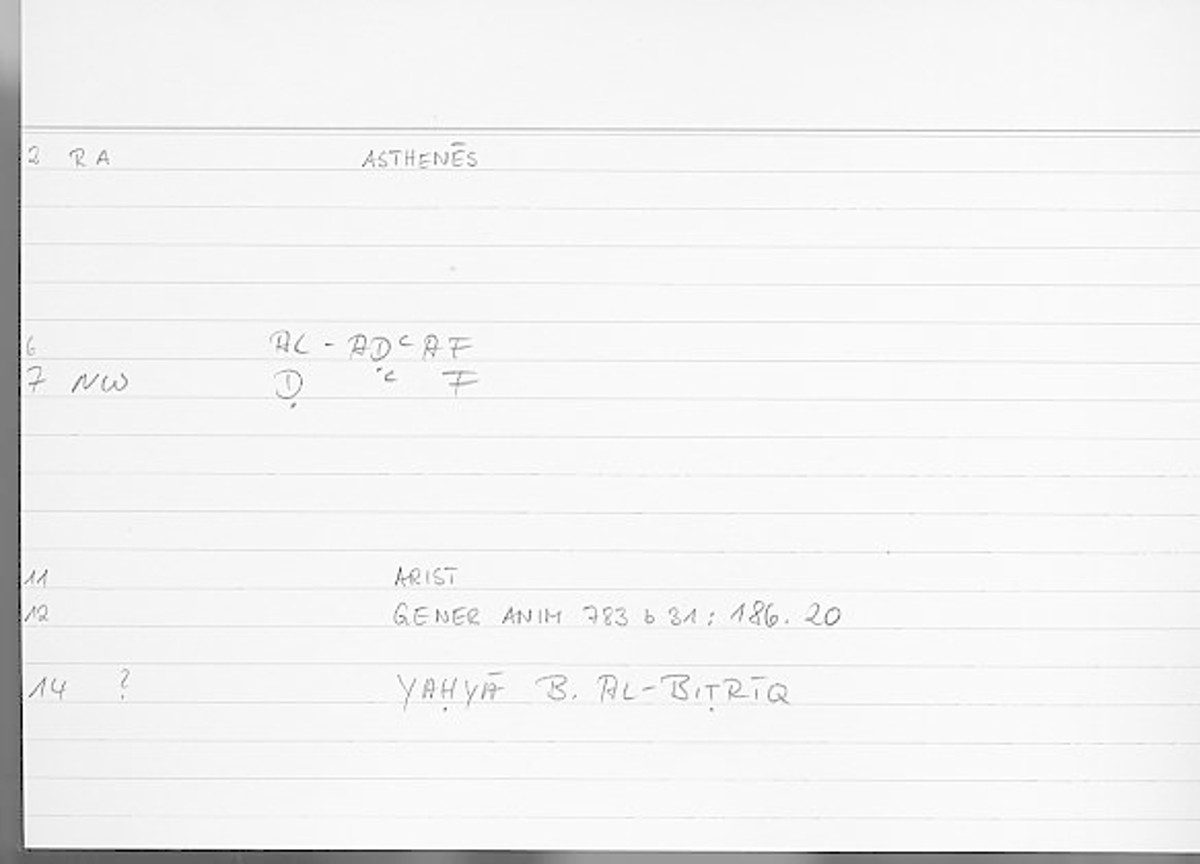 2 RA ASTHENĒS
6 AL-AḌʿAF
7 NW Ḍ ʿ F
11 ARIST
12 GENER ANIM 783 b 31 ; 186. 20
14 ? YAḤYĀ B. AL-BIṬRĪQ